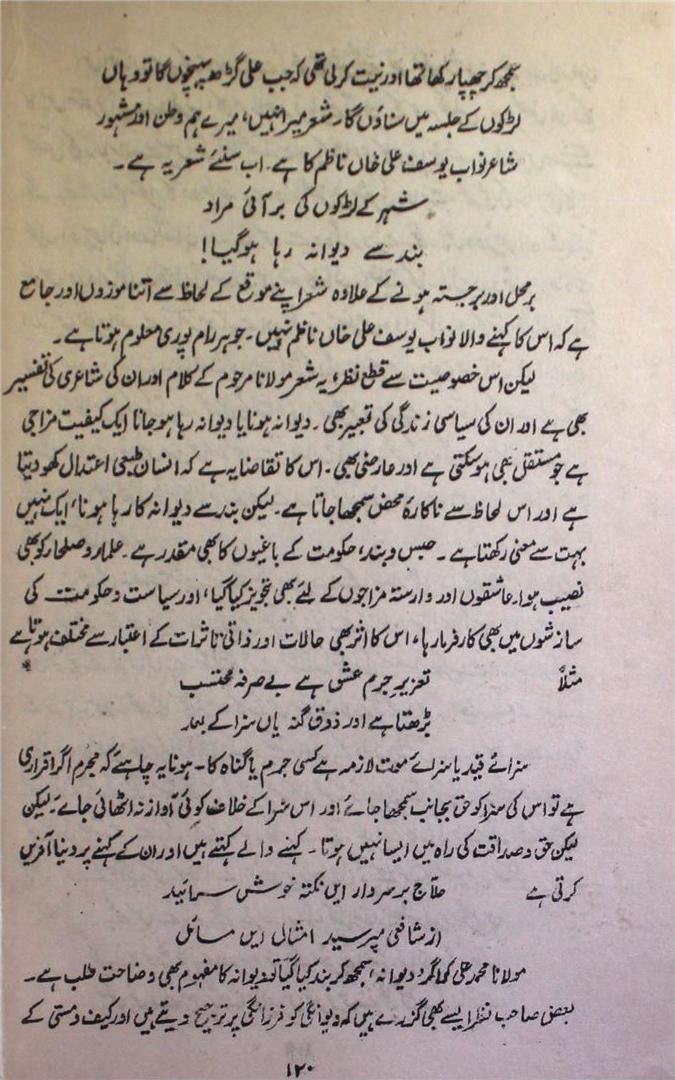 سمجھ کر چھپا رکھا تھا اور نیت کر لی تھی کہ جب علی گڑھ پہنچوں گا تو وہاں
لڑکوں کے جلسہ میں سناؤں گا۔ شعر میرا نہیں، میرے ہم وطن اور مشہور
شاعر نواب یوسف علی خاں ناظم کا ہے۔ اب سنئے شعر یہ ہے۔
شہر کے لڑکوں کی بر آئی مراد
بند سے دیوانہ رہا ہوگیا!
بر محل اور برجستہ ہونے کے علاوہ شعر اپنے موقع کے لحاظ سے اتنا موزوں اور جامع
ہے کہ اس کا کہنے والا نواب یوسف علی خاں ناظم نہیں۔ جوہر رام پوری معلوم ہوتا ہے۔
لیکن اس خصوصیت سے قطع نظر، یہ شعر مولانا مرحوم کے کلام اور ان کی شاعری کی تفسیر
بھی ہے اور ان کی سیاسی زندگی کی تعبیر بھی۔ دیوانہ ہونا یا دیوانہ رہا ہوجانا ایک کیفیت مزاجی
ہے جو مستقل بھی ہوسکتی ہے اور عارضی بھی۔ اس کا تقاضا یہ ہے کہ انسان طبعی اعتدال کھو دیتا
ہے اور اس لحاظ سے ناکارۂ محض سمجھا جاتا ہے۔ لیکن بند سے دیوانہ کا رہا ہونا، ایک نہیں
بہت سے معنی رکھتا ہے۔ حبس و بند، حکومت کے باغیوں کا بھی مقدر ہے۔ علماء و صلحاء کو بھی
نصیب ہوا۔ عاشقوں اور وارستہ مزاجوں کے لئے بھی تجویز کیا گیا، اور سیاست و حکومت کی
سازشوں میں بھی کارفرما رہا، اس کا اثر بھی حالات اور ذاتی تاثرات کے اعتبار سے مختلف ہوتا ہے
مثلاً تعزیر جرم عشق ہے بے صرفہ محتسب
بڑھتا ہے اور ذوق گنہ یاں سزا کے بعد
سزائے قید یا سزائے موت لازمہ ہے کسی جرم یا گناہ کا۔ ہونا یہ چاہئے کہ مجرم اگر اقراری
ہے تو اس کی سزا کو حق بجانب سمجھا جائے اور اس سزا کے خلاف کوئی آواز نہ اٹھائی جائے۔ لیکن
لیکن حق و صداقت کی راہ میں ایسا نہیں ہوتا۔ کہنے والے کہتے ہیں اور ان کے کہنے پر دنیا آفریں
کرتی ہے حلاج بر سر دار ایں نکتہ خوش سرائید
از شافعی مپرسید امثال ایں مسائل
مولانا محمد علی کو اگر 'دیوانہ' سمجھ کر بند کیا گیا تو دیوانہ کا مفہوم بھی وضاحت طلب ہے۔
بعض صاحب نظر ایسے بھی گزرے ہیں کہ دیوانگی کو فرزانگی پر ترجیح دیتے ہیں اور کیف و مستی کے
۱۲۰